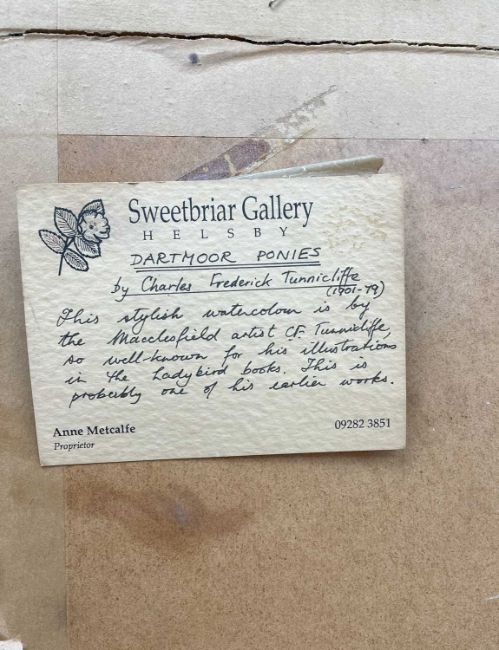 Sweetbriar Gallery
HELSBY
DARTMOOR PONIES
by Charles Frederick Tunnicliffe
(1901-79)
This stylish watercolour is by
the Macclesfield artist C.F. Tunnicliffe,
so well-known for his illustrations
in the Ladybird books. This is
probably one of his earlier works.
Anne Metcalfe
Proprietor
09282 3851